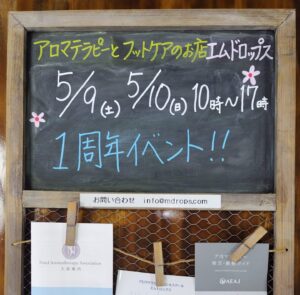 アロマテラピーと フットケアのお店エムドロップス
5/9(土) 5/10(日) 10時〜17時
1周年イベント!!
お問い合わせ info@mdrops.com
AEAJ